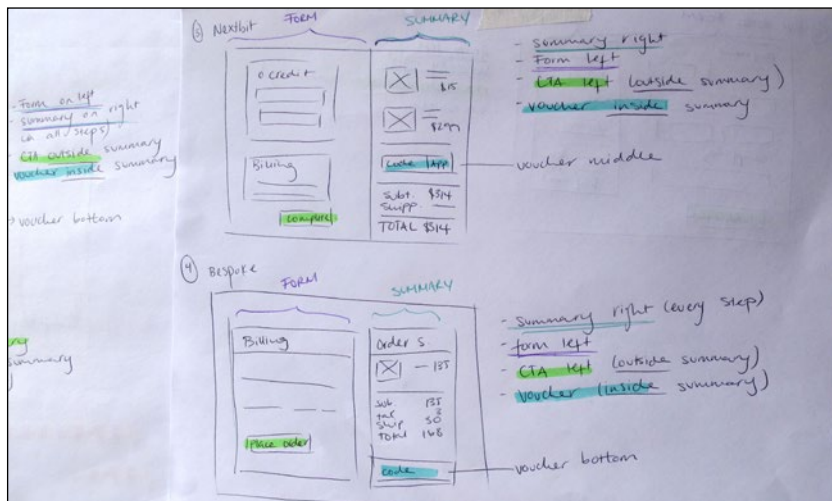 - Form on left
- summary on right
(in all steps)
- CTA outside summary
voucher inside summary
→ voucher bottom
summary
③ Nextbit
FORM
SUMMARY
o credit
Billing
complete
$15
$299
code App
Subt. $314
Shipp.
TOTAL $314
- summary right
- Form left
- CTA left (outside summary)
- voucher inside summary
voucher middle
④ Bespoke
FORM
SUMMARY
Billing
Place order
Order S.
135
Sub. 135
tax 3
Ship 30
Total 168
code
- summary right (every step)
- form left
- CTA left (outside summary)
- voucher (inside summary)
voucher bottom